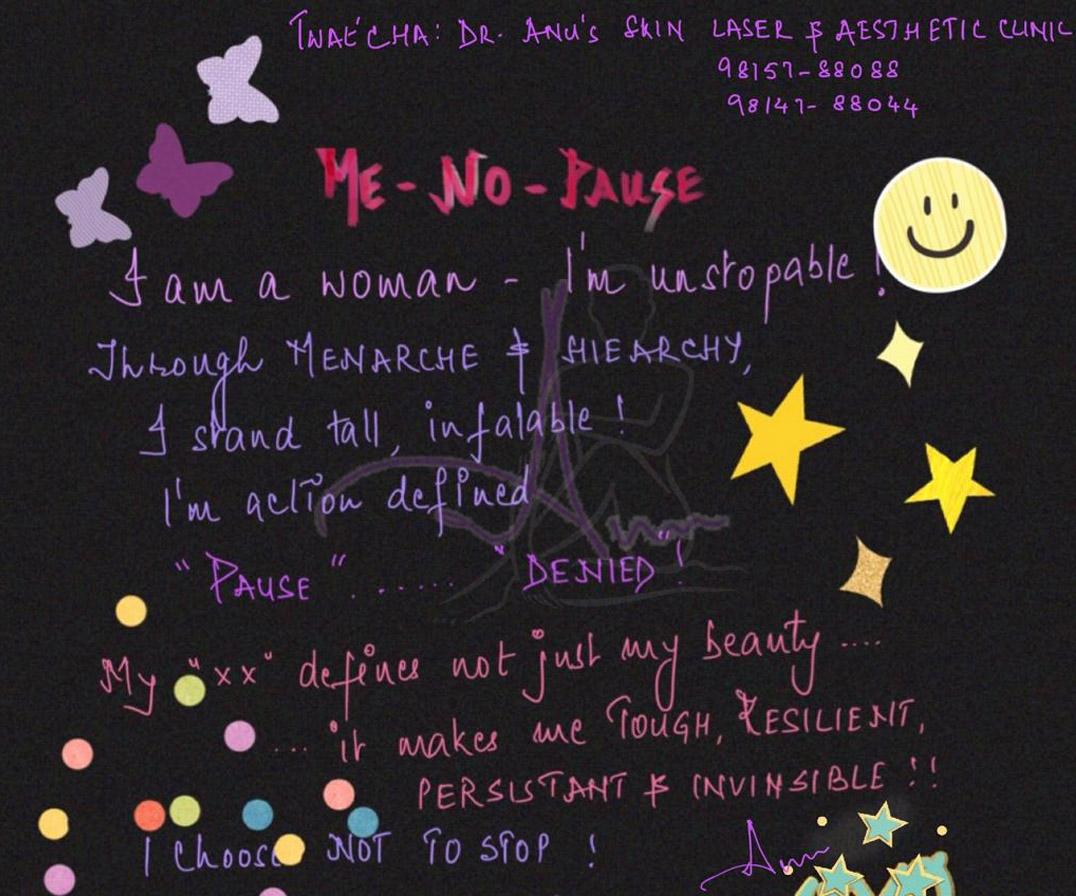 TWAC'CHA: DR. ANU'S SKIN LASER & AESTHETIC CLINIC
98157-88088
98147-88044
ME-NO-PAUSE
I am a woman - I'm unstopable !
Through MENARCHE & HIEARCHY,
I stand tall, infalable !
I'm action defined
"PAUSE" ..... "DENIED"!
Anu
My "xx" defines not just my beauty ....
... it makes me TOUGH, RESILIENT,
PERSISTANT & INVINSIBLE !!
I Choose NOT TO STOP !
Anu